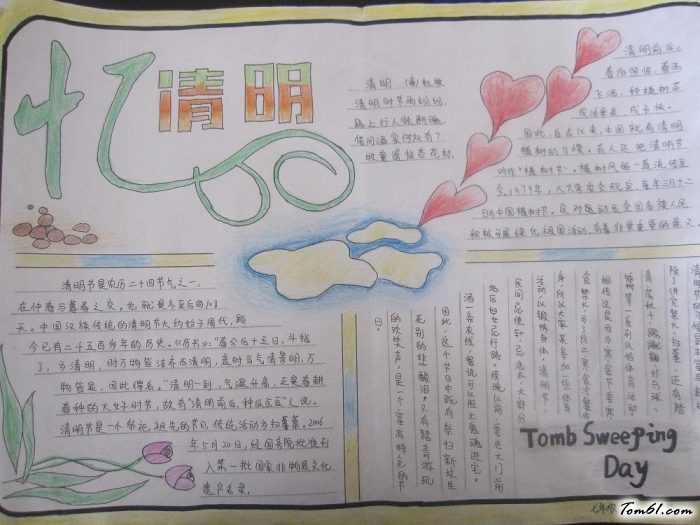 忆清明
清明 (唐)杜牧
清明时节雨纷纷,
路上行人欲断魂。
借问酒家何处有?
牧童遥指杏花村。
清明前后,
春阳照临,春雨
飞洒,种植树苗
成活率高,成长快。
因此,自古以来,中国就有清明
植树的习惯。有人还把清明节
叫作“植树节”。植树风俗一直流传至
今。1979年,人大常委会规定,每年三月十二
日为中国植树节。这对动员全国各族人民
积极开展绿化祖国活动,有着非常重要的意义。
清明节是农历二十四节气之一,
在仲春与暮春之交,也就是冬至后的108
天。中国汉族传统的清明节大约始于周代,距
今已有二千五百多年的历史。《历书》:“春分后十五日,斗指
丁,为清明,时万物皆洁齐而清明,盖时当气清景明,万
物皆显,因此得名。”清明一到,气温升高,正是春耕
春种的大好时节,故有“清明前后,种瓜点豆”之说。
清明节是一个祭祀祖先的节日,传统活动为扫墓。2006
年5月20日,经国务院批准列
入第一批国家非物质文化
遗产名录。
除了讲究禁火、扫墓,还有踏
青、荡秋千、蹴鞠、打马球、
插柳等一系列风俗体育活动。
相传这是因为寒食节要寒
食禁火,为了防止寒食冷餐伤
身,所以大家来参加一些体育
活动,以锻炼身体。清明节,
民间忌使针,忌洗衣,大部分
地区妇女忌行路。傍晚以前,要在大门前
洒一条灰线,据说可以阻止鬼魂进宅。
因此,这个节日中既有祭扫新坟生
死别的悲酸泪,又有踏青游玩
的欢笑声,是一个富有特色的节
日。
Tomb Sweeping
Day
Tom61.com